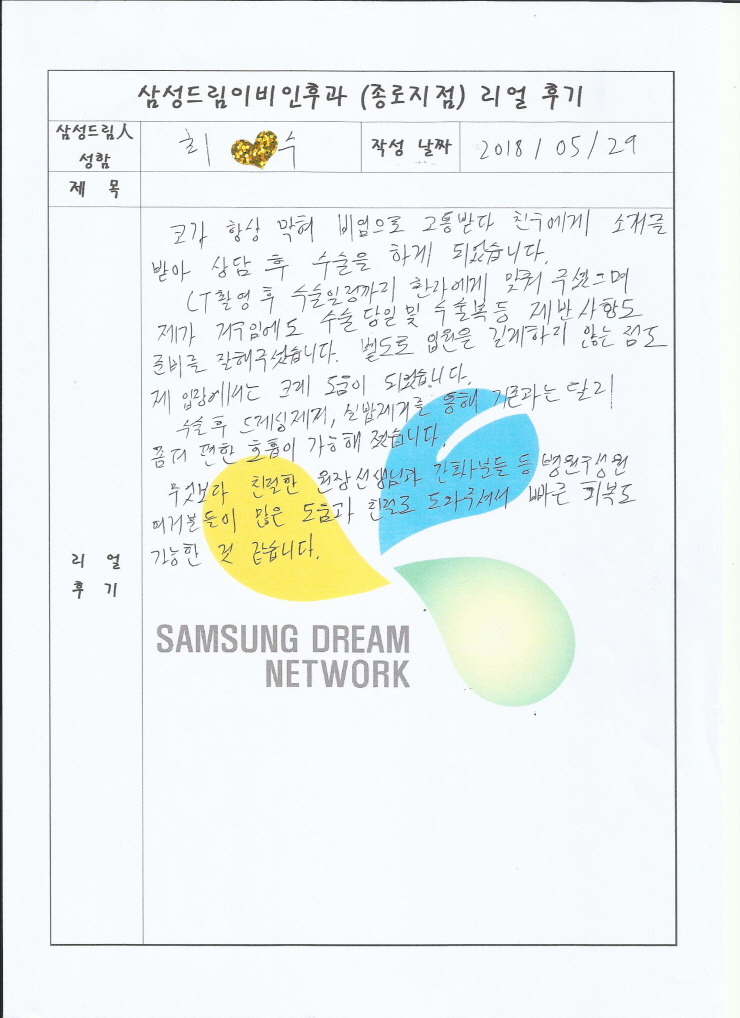 삼성드림이비인후과 (종로지점) 리얼 후기
삼성드림人
성함
최 수
작성 날짜
2018 / 05 / 29
제 목
코가 항상 막혀 비염으로 고통받다 친구에게 소개를
받아 상담 후 수술을 하게 되었습니다.
CT촬영 후 수술일정까지 환자에게 맞춰 주셨으며
제가 거구임에도 수술 당일 및 수술복 등 제반 사항도
준비를 잘해주셨습니다. 별도로 입원은 길게하지 않는 점도
제 입장에서는 크게 도움이 되었습니다.
수술 후 드레싱제거, 실밥제거를 통해 기존과는 달리
좀더 편한 호흡이 가능해 졌습니다.
무엇보다 친절한 원장선생님과 간호사분들 등 병원구성원
여러분들이 많은 도움과 친절로 도와주셔서 빠른 회복도
가능한 것 같습니다.
리 얼
후 기
SAMSUNG DREAM
NETWORK